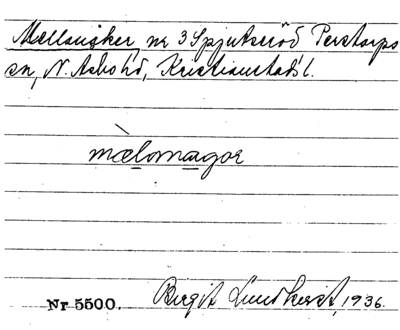 Mellanåker, nr 3 Spjutseröd Perstorps
sn, N. Åsbo hd, Kristianstads l.
mælomagor
Nr 5500. Birgit Lundkvist, 1936.